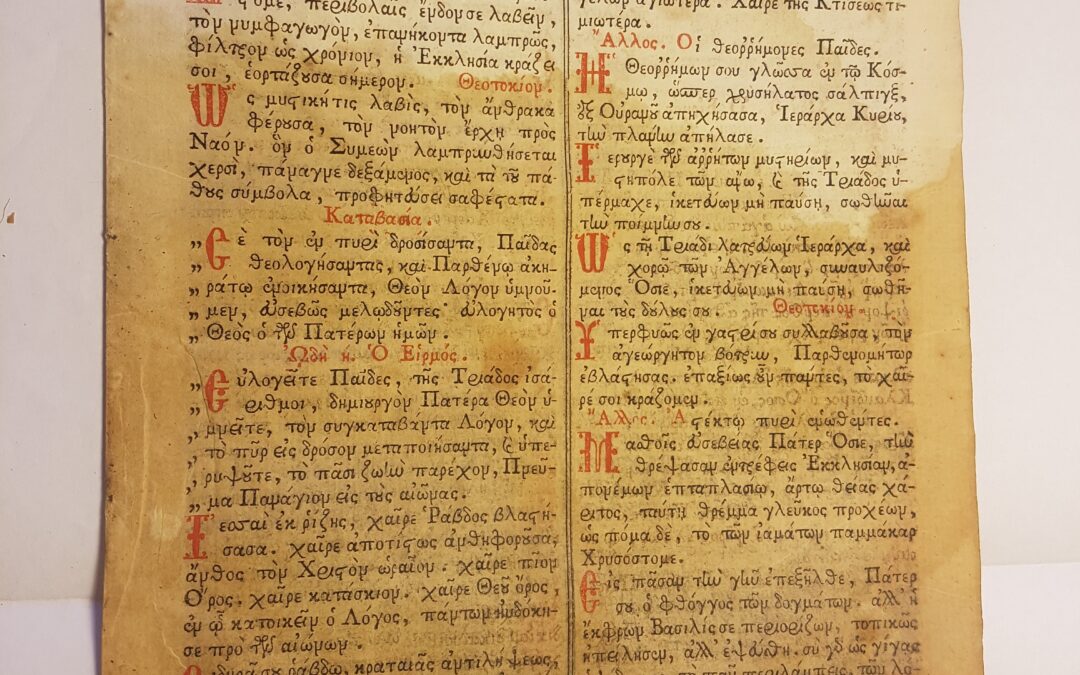 περιβολαῖς ἔνδον σε λαβεῖν,
τὸν νυμφαγωγὸν, ἐπαφήκοντα λαμπρῶς,
φίλτρον ὡς χρόνιον, ἡ Ἐκκλησία κράζει
σοι, ἑορτάζουσα σήμερον. Θεοτοκίον.
Ὡς μυστικήτις λαβὶς, τὸν ἄνθρακα
φέρουσα, τὸν νοητὸν ἔρχη πρὸς
Ναόν. ὃν ὁ Συμεὼν λαμπρυνθήσεται
χερσὶ, πάναγνε δεξάμενος, καὶ τὰ τοῦ πά-
θους σύμβολα, προφητεύσει σαφέστατα.
Καταβασία.
„ Σὲ τὸν ἐν πυρὶ δροσίσαντα, Παῖδας
„ θεολογήσαντας, καὶ Παρθένῳ ἀκη-
„ ράτῳ ἐνοικήσαντα, Θεὸν Λόγον ὑμνοῦ-
„ μεν, εὐσεβῶς μελωδοῦντες· εὐλογητὸς ὁ
„ Θεὸς ὁ τῶν Πατέρων ἡμῶν.
ᾨδὴ η. Ὁ Εἱρμός.
„ Εὐλογεῖτε Παῖδες, τῆς Τριάδος ἰσά-
„ ριθμοι, δημιουργὸν Πατέρα Θεὸν ὑ-
„ μνεῖτε, τὸν συγκαταβάντα Λόγον, καὶ
„ τὸ πῦρ εἰς δρόσον μεταποιήσαντα, καὶ ὑπε-
„ ρυψοῦτε, τὸ πᾶσι ζωὴν παρέχον, Πνεῦ-
„ μα Πανάγιον εἰς τοὺς αἰῶνας.
Ἰεσσαὶ ἐκ ρίζης, χαῖρε Ῥάβδος βλαστή-
σασα. χαῖρε ἀποτίστως ἀνθηφοροῦσα,
ἄνθος τὸν Χριστὸν ὡραῖον. χαῖρε πῖον
Ὄρος. χαῖρε κατάσκιον. χαῖρε Θεοῦ ὄρος,
ἐν ᾧ κατοικεῖν ὁ Λόγος, πάντων ηὐδόκη-
σε πρὸ τῶν αἰώνων.
ῥάβδῳ, κραταιᾶς ἀντιλήψεως,
γέλων ἁγιωτέρα. Χαῖρε τῆς Κτίσεως τι-
μιωτέρα.
Ἄλλος. Οἱ θεοῤῥήμονες Παῖδες.
Ἡ Θεοῤῥήμων σου γλῶσσα ἐν τῷ Κόσ-
μῳ, ὥσπερ χρυσήλατος σάλπιγξ,
ἐξ Οὐρανοῦ ἀπηχήσασα, Ἱεράρχα Κυρίου,
τὴν πλάνην ἀπήλασε.
Ἱερουργὲ τῶν ἀῤῥήτων μυστηρίων, καὶ μυ-
στηπόλε τῶν ἄνω, καὶ τῆς Τριάδος ὑ-
πέρμαχε, ἱκετεύων μὴ παύσῃ, σωθῆναι
τὴν ποίμνην σου.
Ὡς τῇ Τριάδι λατρεύων Ἱεράρχα, καὶ
χορῷ τῶν Ἀγγέλων, συναυλιζό-
μενος Ὅσιε, ἱκετεύων μὴ παύσῃ, σωθῆ-
ναι τοὺς δούλους σου. Θεοτοκίον.
Ὑπερφυῶς ἐν γαστρί σου συλλαβοῦσα, τὸν
ἀγεώργητον βότρυν, Παρθενομῆτορ
ἐβλάστησας. ἐπαξίως οὖν πάντες, τὸ χαῖ-
ρέ σοι κράζομεν.
Ἄλλος. Ἀστέκτῳ πυρὶ ἑνωθέντες.
Μασθοῖς εὐσεβείας Πάτερ Ὅσιε, τὴν
θρέψασαν ἐντρέφεις Ἐκκλησίαν, ἀ-
πονέμων ἑπταπλασίω, ἄρτῳ θείας χά-
ριτος, ταύτῃ θρέμμα γλεῦκος προχέων,
ὡς πόμα δὲ, τὸ τῶν ἰαμάτων παμμάκαρ
Χρυσόστομε.
Εἰς πᾶσαν τὴν γῆν ἐπεξῆλθε, Πάτερ
σου ὁ φθόγγος τῶν δογμάτων. ἀλλ' ἡ
ἔκφρων Βασιλίς σε περιορίζων, τοπικῶς
ἠπείλησεν, ἀλλ' ἐψεύσθη. σὺ γὰρ ὡς γίγας